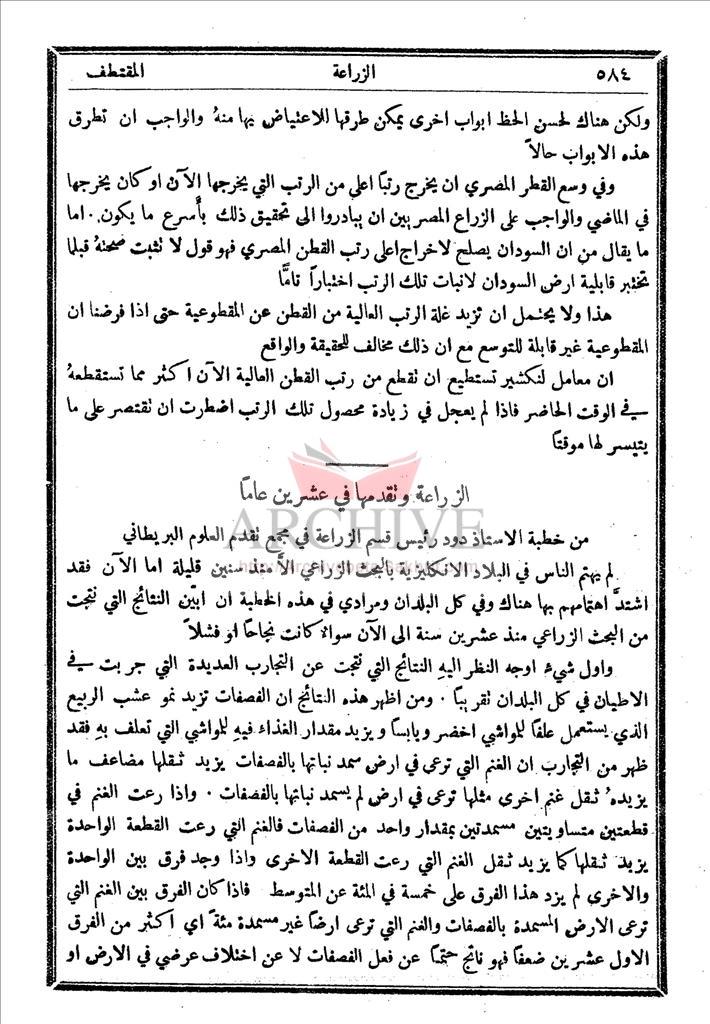 ٥٨٤ الزراعة المقتطف
ولكن هناك لحسن الحظ ابواب اخرى يمكن طرقها للاعتياض بها منهُ والواجب ان تطرق
هذه الابواب حالاً
وفي وسع القطر المصري ان يخرج رتبًا اعلى من الرتب التي يخرجها الآن او كان يخرجها
في الماضي والواجب على الزراع المصريين ان يبادروا الى تحقيق ذلك بأسرع ما يكون. اما
ما يقال من ان السودان يصلح لاخراج اعلى رتب القطن المصري فهو قول لا تثبت صحتهُ قبلما
تختبر قابلية ارض السودان لانبات تلك الرتب اختبارًا تامًّا
هذا ولا يحتمل ان تزيد غلة الرتب العالية من القطن عن المقطوعية حتى اذا فرضنا ان
المقطوعية غير قابلة للتوسع مع ان ذلك مخالف للحقيقة والواقع
ان معامل لنكشير تستطيع ان تقطع من رتب القطن العالية الآن اكثر مما تستقطعهُ
في الوقت الحاضر فاذا لم يعجل في زيادة محصول تلك الرتب اضطرت ان تقتصر على ما
يتيسر لها موقتًا
الزراعة وتقدمها في عشرين عامًا
ARCHIVE
من خطبة الاستاذ دود رئيس قسم الزراعة في مجمع تقدم العلوم البريطاني
لم يهتم الناس في البلاد الانكليزية بالبحث الزراعي الاَّ منذ سنين قليلة اما الآن فقد
اشتدَّ اهتمامهم بها هناك وفي كل البلدان ومرادي في هذه الخطبة ان ابيّن النتائج التي نتجت
من البحث الزراعي منذ عشرين سنة الى الآن سواءٌ كانت نجاحًا او فشلاً
واول شيءٍ اوجه النظر اليهِ النتائج التي نتجت عن التجارب العديدة التي جربت في
الاطيان في كل البلدان نقريبًا . ومن اظهر هذه النتائج ان الفصفات تزيد نمو عشب الربيع
الذي يستعمل علفًا للمواشي اخضر ويابسًا ويزيد مقدار الغذاء فيهِ للمواشي التي تعلف بهِ فقد
ظهر من التجارب ان الغنم التي ترعى في ارض سمد نباتها بالفصفات يزيد ثقلها مضاعف ما
يزيدهُ ثقل غنم اخرى مثلها ترعى في ارض لم يسمد نباتها بالفصفات . واذا رعت الغنم في
قطعتين متساويتين مسمدتين بمقدار واحد من الفصفات فالغنم التي رعت القطعة الواحدة
يزيد ثقلها كما يزيد ثقل الغنم التي رعت القطعة الاخرى واذا وجد فرق بين الواحدة
والاخرى لم يزد هذا الفرق على خمسة في المئة عن المتوسط فاذا كان الفرق بين الغنم التي
ترعى الارض المسمدة بالفصفات والغنم التي ترعى ارضًا غير مسمدة مئةً اي اكثر من الفرق
الاول عشرين ضعفًا فهو ناتج حتمًا عن فعل الفصفات لا عن اختلاف عرضي في الارض او